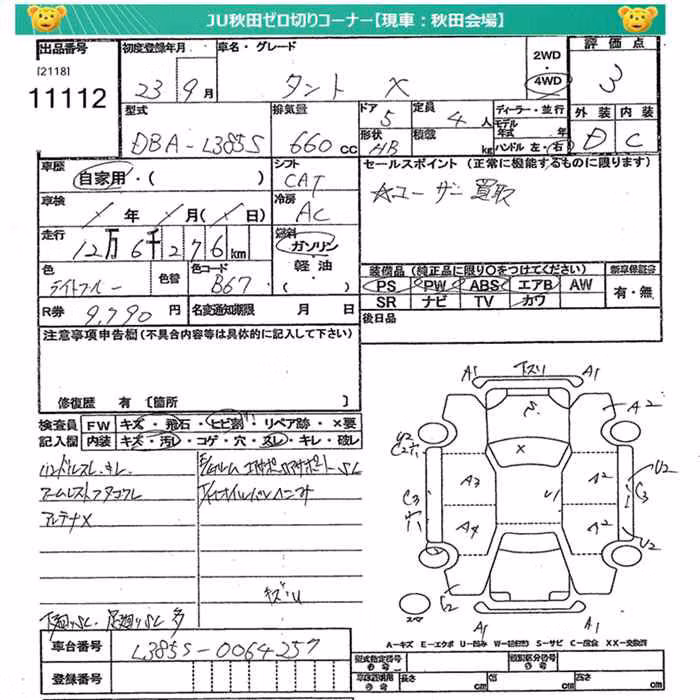 JU秋田ゼロ切りコーナー【現車：秋田会場】
出品番号
[2118]
11112
初度登録年月
23 9月
車名・グレード
タント X
2WD
・
4WD
評価点
3
型式
DBA-L385S
排気量
660cc
ドア
5
形状
HB
定員
4人
積載
kg
ディーラー・並行
モデル年式 年
ハンドル 左・右
外装 内装
D C
車歴
自家用・( )
シフト
CAT
セールスポイント (正常に機能するものに限ります)
☆ユーザー買取
車検
/年 /月(/日)
冷房
AC
走行
12万6千276km
燃料
ガソリン
・
軽油
・( )
色
ライトブルー
色替
色コード
B67
装備品 (純正品に限り○をつけてください)
新車保証書
PS PW ABS エアB AW
有・無
SR ナビ TV カワ
R券
9,790円
名変通知期限 月 日
後日品
注意事項申告欄(不具合内容等は具体的に記入して下さい)
修復歴 有〔箇所
検査員記入欄
FW キズ・飛石・ヒビ割・リペア跡・×要
内装 キズ・汚レ・コゲ・穴・スレ・キレ・破レ
ハンドルスレ・キレ
アンテナX
キズ・U
下廻りSL 足廻りSL 多
A1 下スリ A1
A2
U2
A3
A2
U2
C3
C3
U1
A4
A2
U2
A1 A1
スペア
A=キズ E=エクボ U=凹み W=波(補修) S=サビ C=腐食 XX=交換済
車台番号
L385S-0064257
登録番号
型式指定番号
類別区分番号
長さ cm 幅 cm 高さ cm